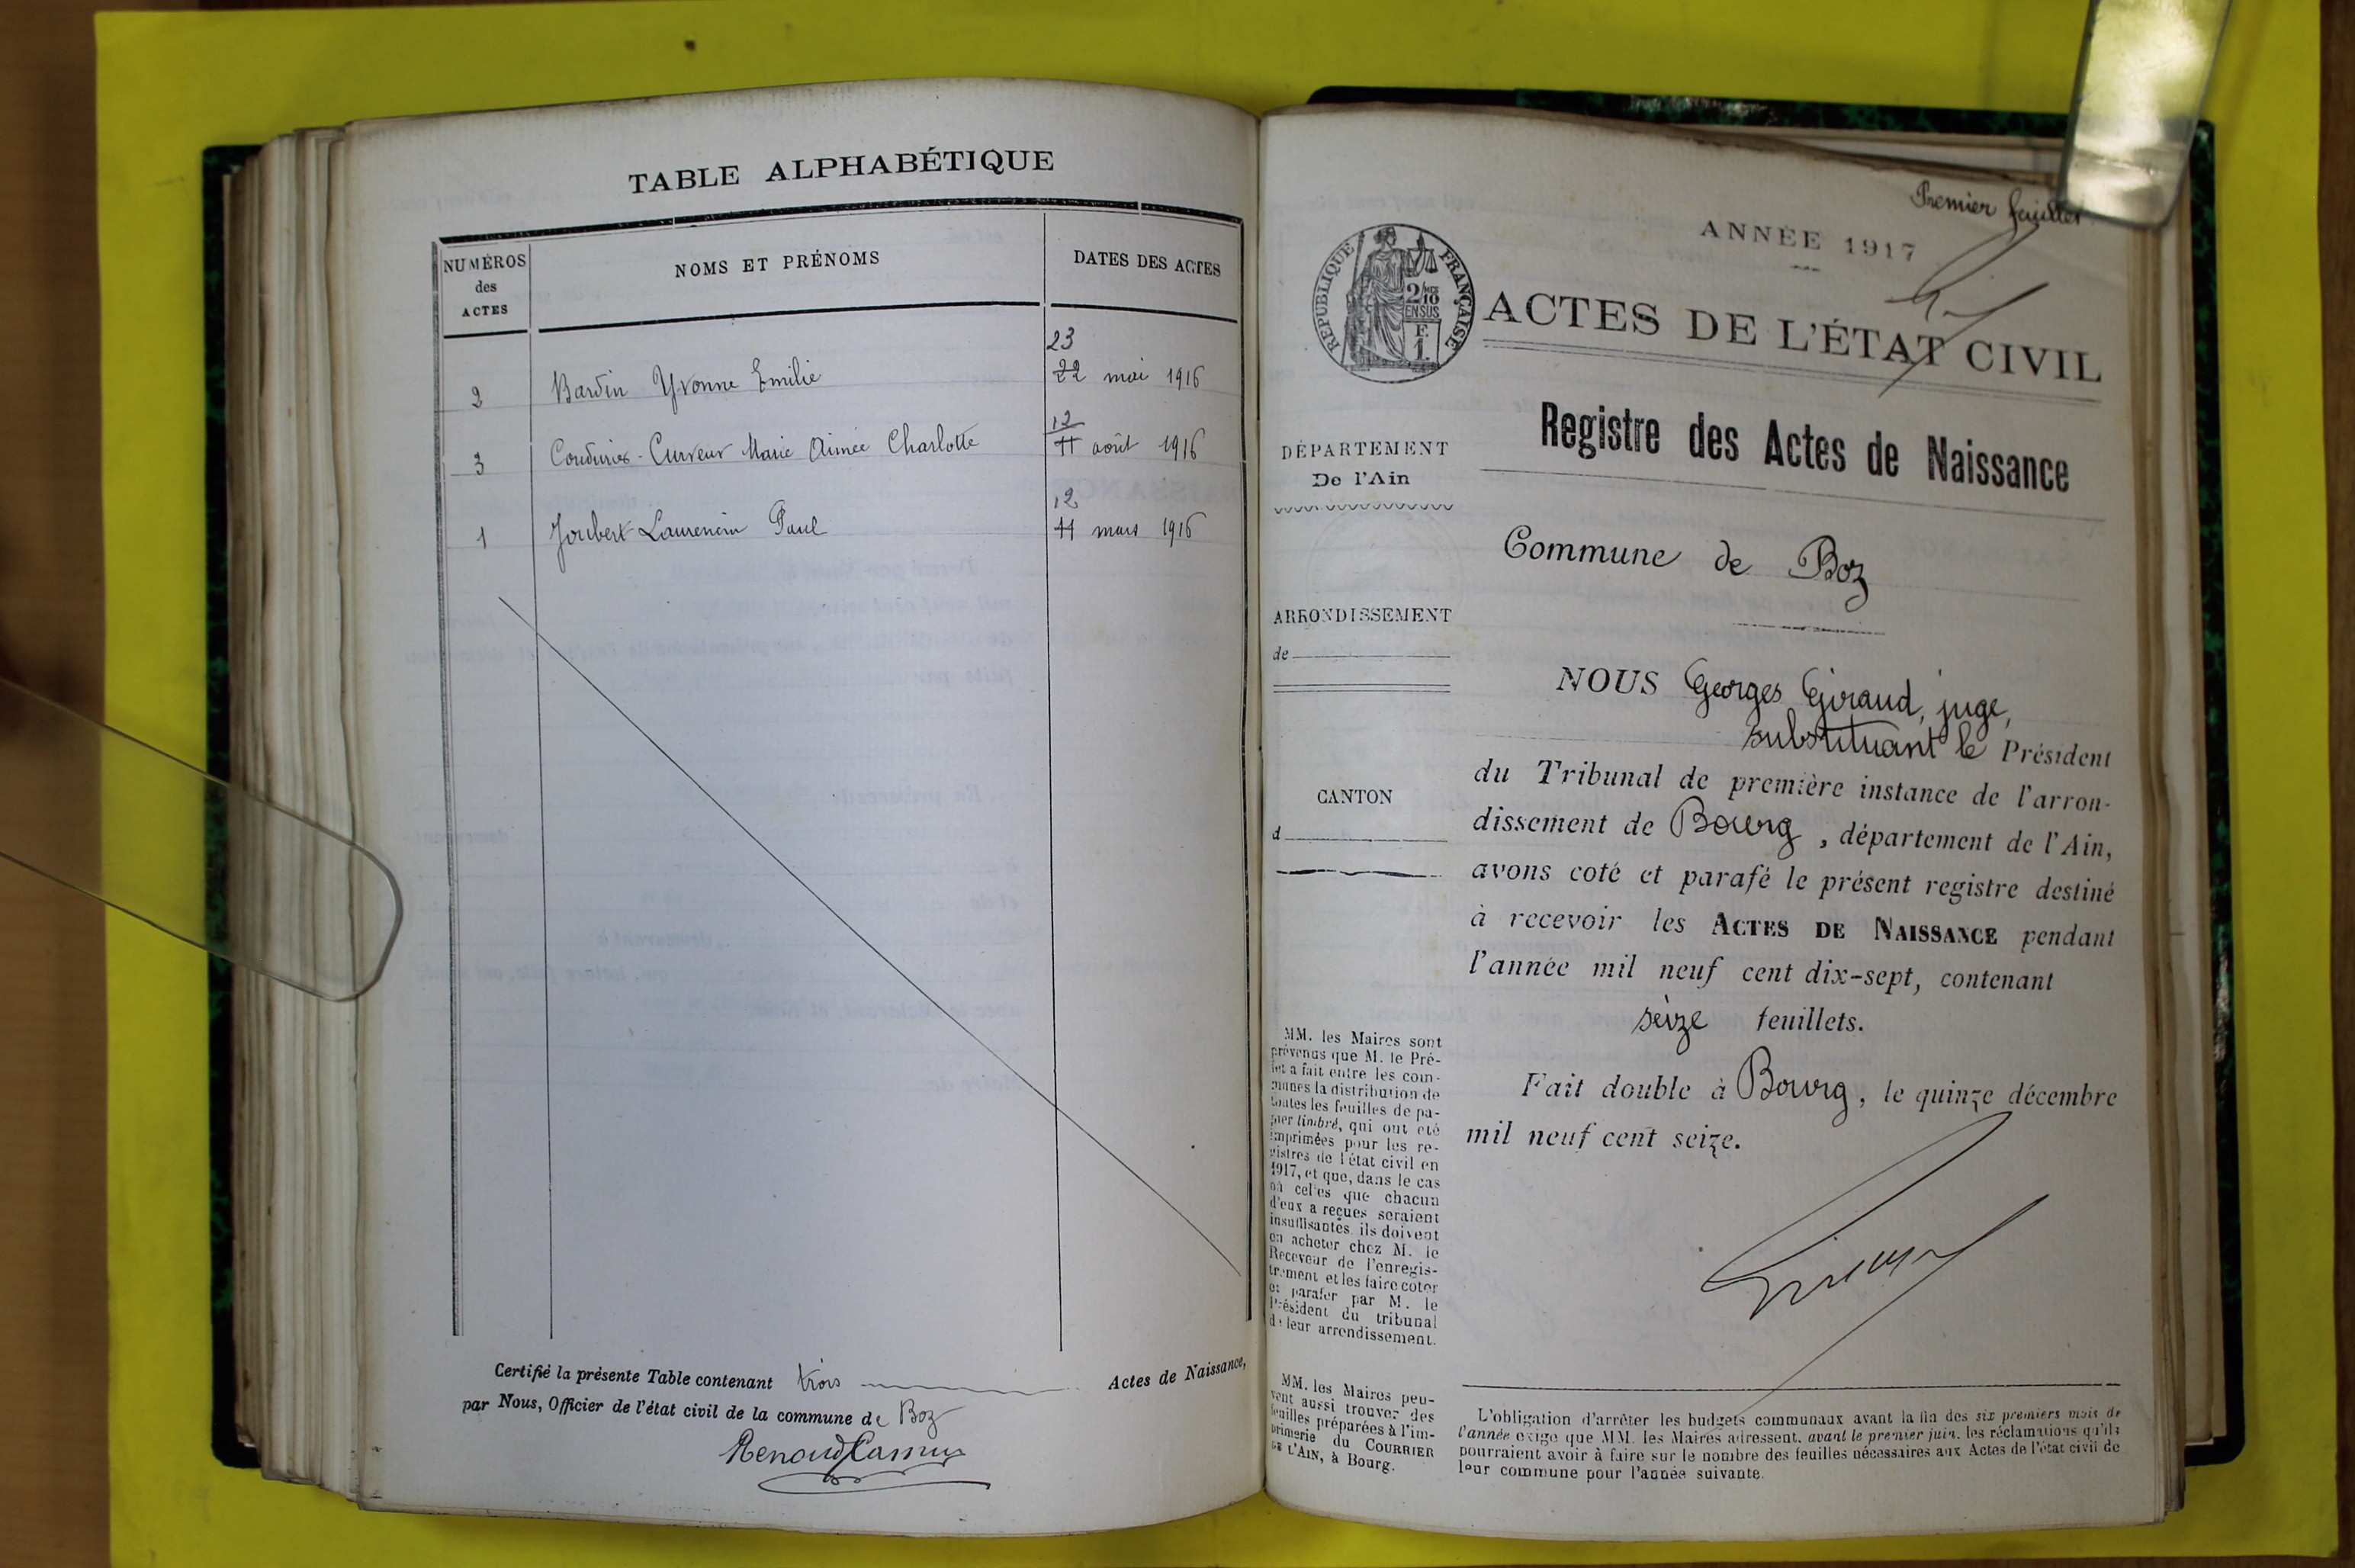 TABLE ALPHABÉTIQUE
NUMÉROS
des
ACTES
NOMS ET PRÉNOMS
DATES DES ACTES
23
2 Bardin Yvonne Emilie 22 mai 1916
12
3 Couturier-Curveur Marie Aimée Charlotte 11 août 1916
12
1 Joubert Laurencin Paul 11 mars 1916
Certifié la présente Table contenant trois Actes de Naissance,
par Nous, Officier de l'état civil de la commune de Boz
Renoud Camus
Premier feuillet
ANNÉE 1917
REPUBLIQUE FRANÇAISE
2/10
EN SUS
ACTES DE L'ÉTAT CIVIL
Registre des Actes de Naissance
DÉPARTEMENT
De l'Ain
Commune de Boz
ARRONDISSEMENT
de
CANTON
d
NOUS Georges Giraud, juge,
substituant le Président
du Tribunal de première instance de l'arron-
dissement de Bourg, département de l'Ain,
avons coté et parafé le présent registre destiné
à recevoir les ACTES DE NAISSANCE pendant
l'année mil neuf cent dix-sept, contenant
seize feuillets.
Fait double à Bourg, le quinze décembre
mil neuf cent seize.
MM. les Maires sont
prévenus que M. le Pré-
fet a fait entre les com-
munes la distribution de
toutes les feuilles de pa-
pier timbré, qui ont été
imprimées pour les re-
gistres de l'état civil en
1917, et que, dans le cas
où celles que chacun
d'eux a reçues seraient
insuffisantes, ils doivent
en acheter chez M. le
Receveur de l'enregis-
trement et les faire coter
et parafer par M. le
Président du tribunal
de leur arrondissement.
MM. les Maires peu-
vent aussi trouver des
feuilles préparées à l'im-
primerie du COURRIER
DE L'AIN, à Bourg.
L'obligation d'arrêter les budgets communaux avant la fin des six premiers mois de
l'année exige que MM. les Maires adressent, avant le premier juin, les réclamations qu'ils
pourraient avoir à faire sur le nombre des feuilles nécessaires aux Actes de l'état civil de
leur commune pour l'année suivante.